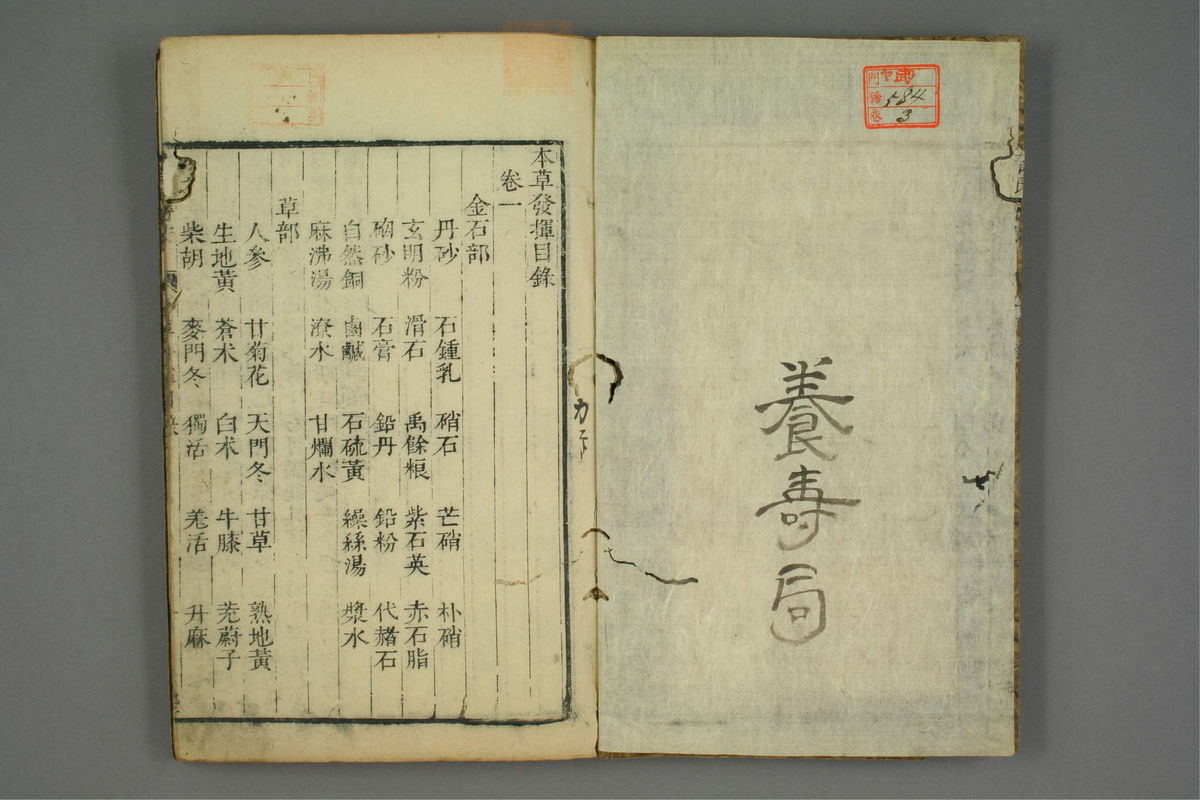 養壽局
門
號 584
卷 3
本草發揮目錄
卷一
金石部
丹砂 石鍾乳 硝石 芒硝 朴硝
玄明粉 滑石 禹餘粮 紫石英 赤石脂
硇砂 石膏 鉛丹 鉛粉 代赭石
自然銅 鹵鹹 石硫黃 繰絲湯 漿水
麻沸湯 潦水 甘爛水
草部
人參 甘菊花 天門冬 甘草 熟地黃
生地黃 蒼朮 白朮 牛膝 茺蔚子
柴胡 麥門冬 獨活 羌活 升麻